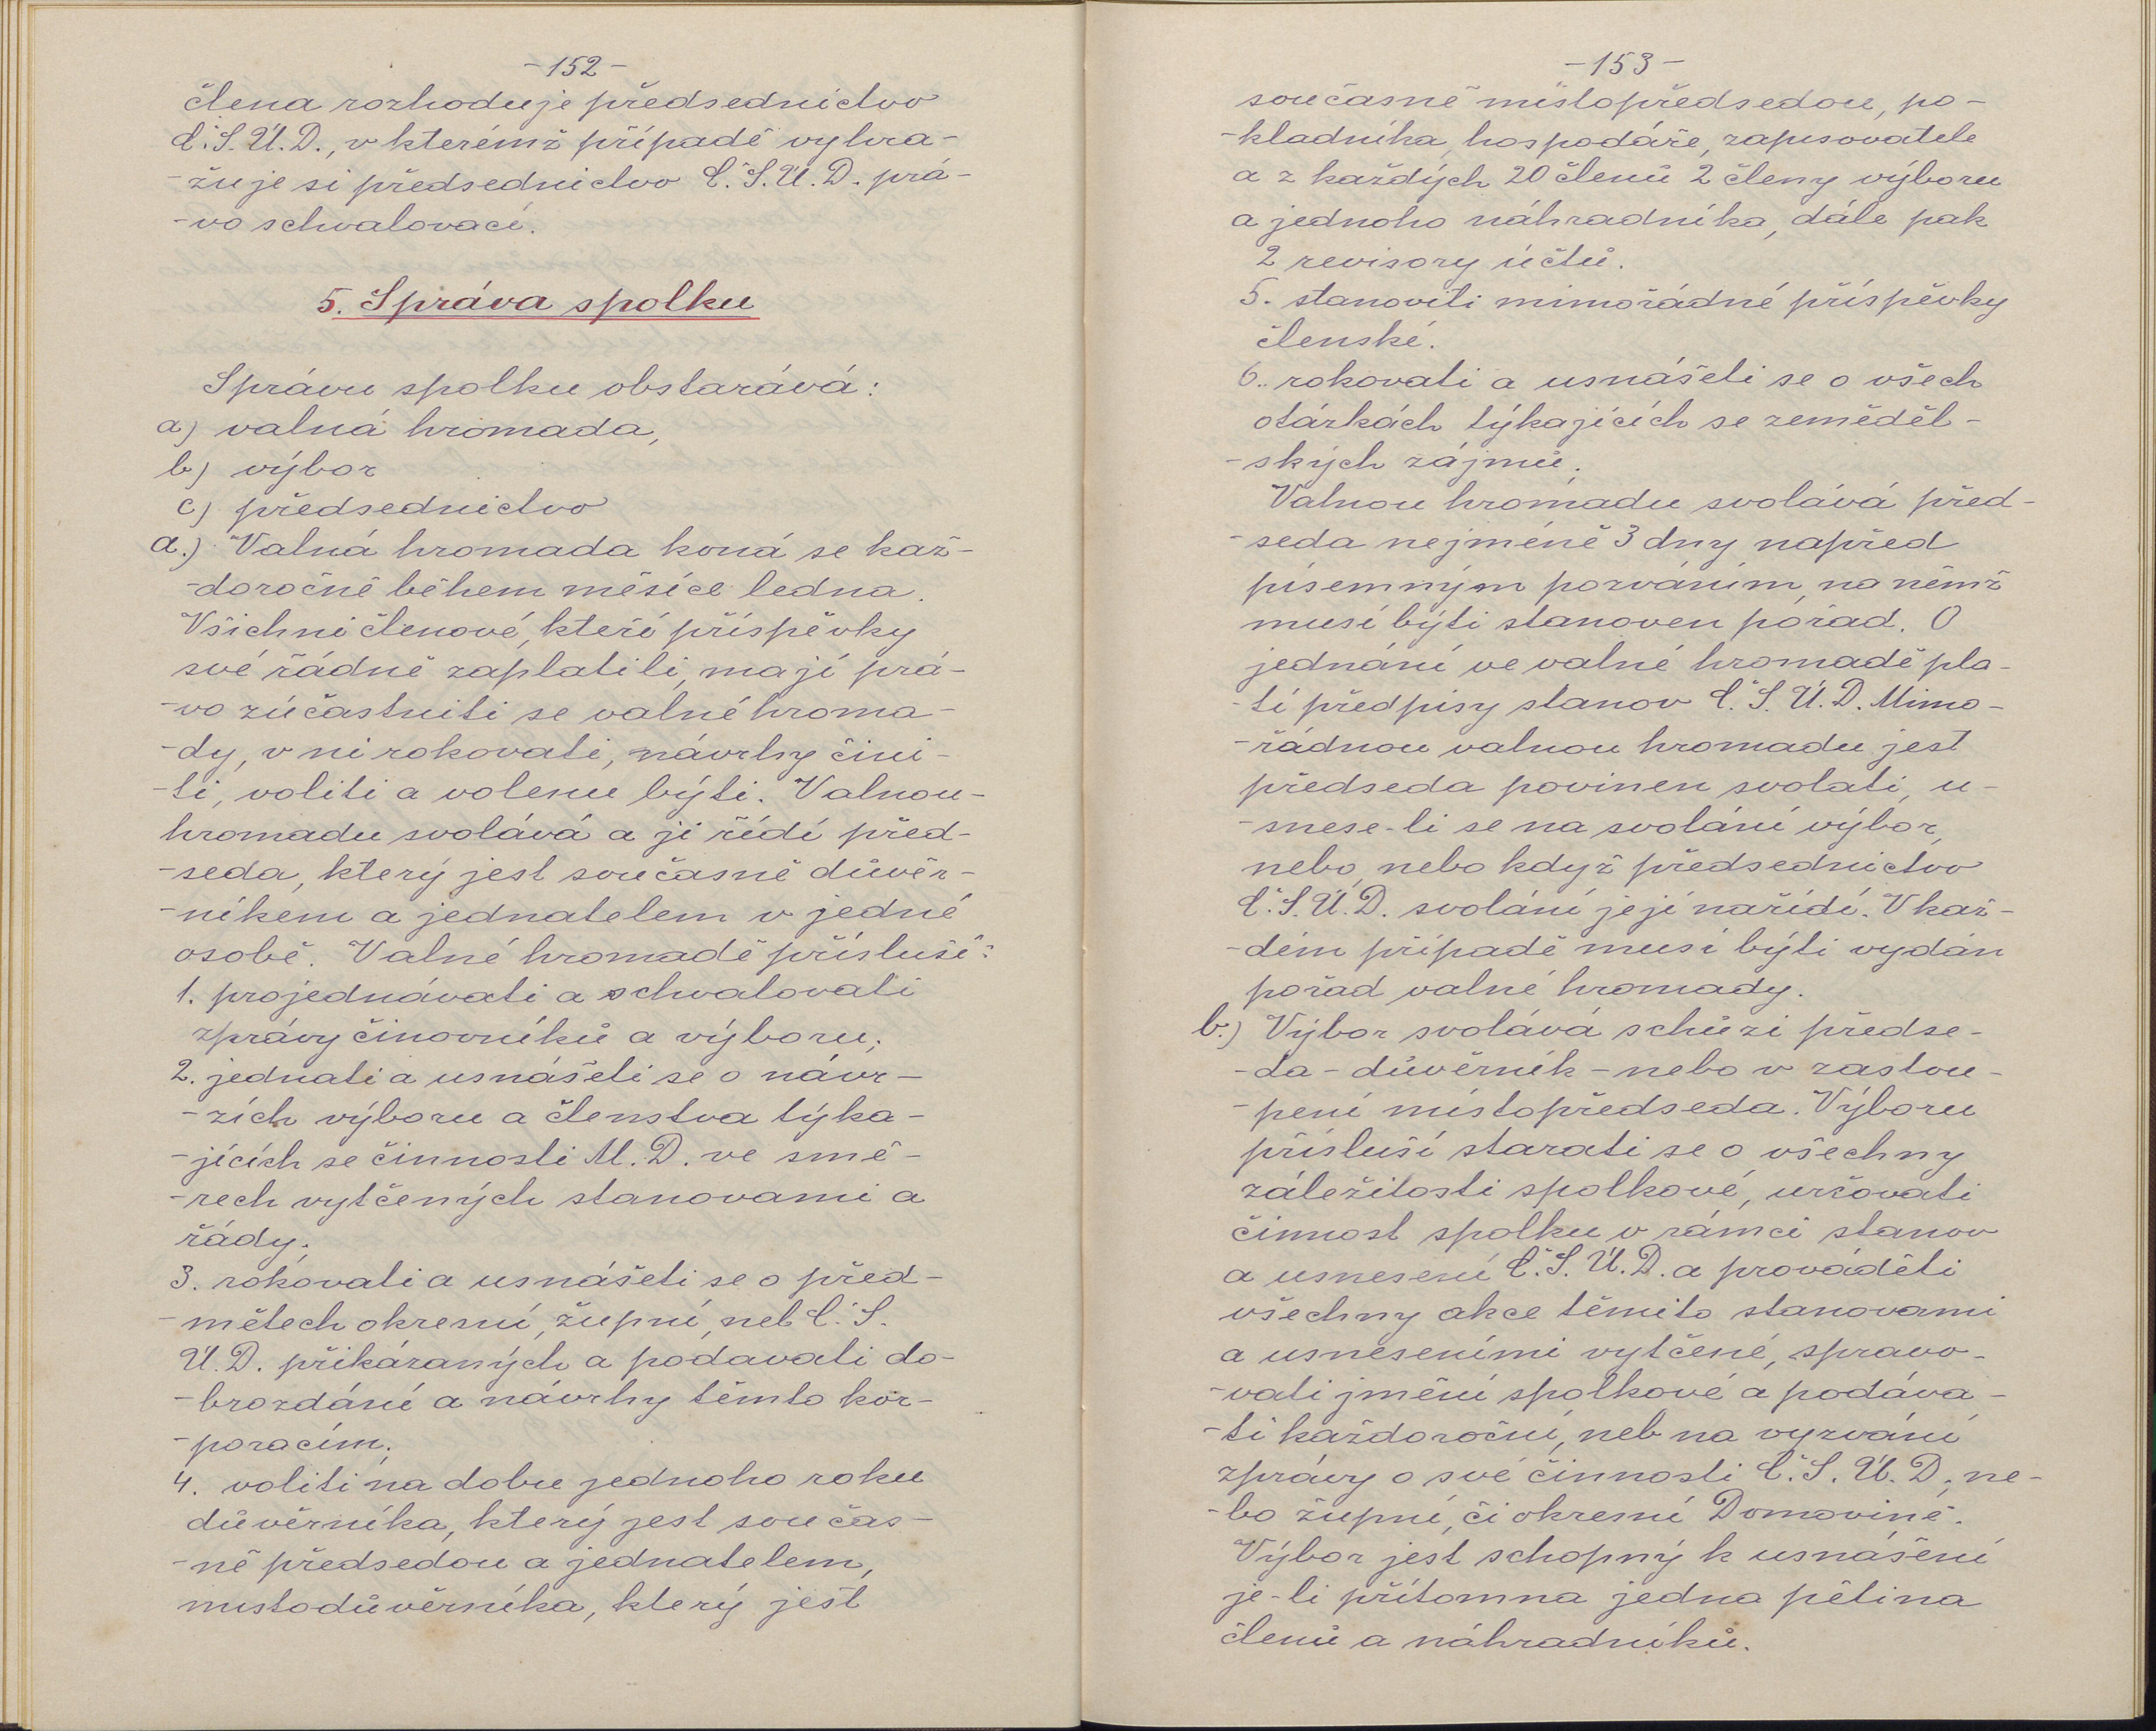 -152-
člena rozhoduje předsednictvo
Č.S.Ú.D., v kterémž případě vyhra-
-žuje si předsednictvo Č.S.Ú.D. prá-
-vo schvalovací.
5. Správa spolku
Správu spolku obstarává:
a) valná hromada,
b) výbor
c) předsednictvo
a.) Valná hromada koná se kaž-
-doročně během měsíce ledna.
Všichni členové, kteří příspěvky
své řádně zaplatili, mají prá-
-vo zúčastniti se valné hroma-
-dy, v ní rokovati, návrhy čini-
-ti, voliti a volenu býti. Valnou-
hromadu svolává a ji řídí před-
-seda, který jest současně důvěr-
-níkem a jednatelem v jedné
osobě. Valné hromadě přísluší:
1. projednávati a schvalovati
zprávy činovníků a výboru;
2. jednati a usnášeti se o návr-
-zích výboru a členstva týka-
-jících se činnosti M.D. ve smě-
-rech vytčených stanovami a
řády;
3. rokovati a usnášeti se o před-
-mětech okresní, župní, neb Č.S.
Ú.D. přikázaných a podavati do-
-brozdání a návrhy těmto kor-
-poracím;
4. voliti na dobu jednoho roku
důvěrníka, který jest součas-
-ně předsedou a jednatelem,
místodůvěrníka, který jest
-153-
současně místopředsedou, po-
-kladníka, hospodáře, zapisovatele
a z každých 20 členů 2 členy výboru
a jednoho náhradníka, dále pak
2 revisory účtů.
5. stanoviti mimořádné příspěvky
členské.
6. rokovati a usnášeti se o všech
otázkách týkajících se zeměděl-
-ských zájmů.
Valnou hromadu svolává před-
-seda nejméně 3 dny napřed
písemným pozváním, na němž
musí býti stanoven pořad. O
jednání ve valné hromadě pla-
-tí předpisy stanov Č.S.Ú.D. Mimo-
-řádnou valnou hromadu jest
předseda povinen svolati, u-
-snese-li se na svolání výbor,
nebo, nebo když předsednictvo
Č.S.Ú.D. svolání její nařídí. V kaž-
-dém případě musí býti vydán
pořad valné hromady.
b.) Výbor svolává schůzi předse-
-da - důvěrník - nebo v zastou-
-pení místopředseda. Výboru
přísluší starati se o všechny
záležitosti spolkové, určovati
činnost spolku v rámci stanov
a usnesení Č.S.Ú.D. a prováděti
všechny akce těmito stanovami
a usneseními vytčené, spravo-
-vati jmění spolkové a podáva-
-ti každoroční, neb na vyzvání
zprávy o své činnosti Č.S.Ú.D., ne-
-bo župní, či okresní Domovině.
Výbor jest schopný k usnášení
je-li přítomna jedna pětina
členů a náhradníků.